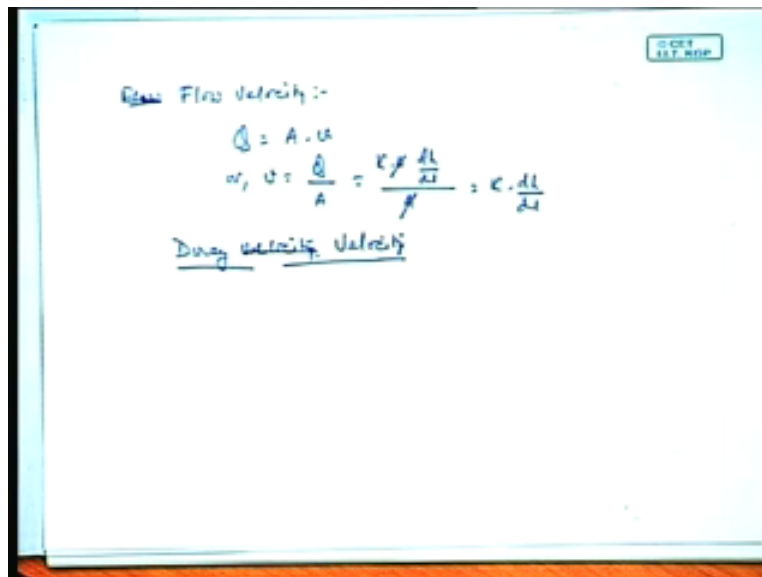 © CET
I.I.T. KGP
Flow Velocity :-
Q = A . v
or, v = Q/A = K.A dh/dl / A = K . dh/dl
Darcy velocity Velocity